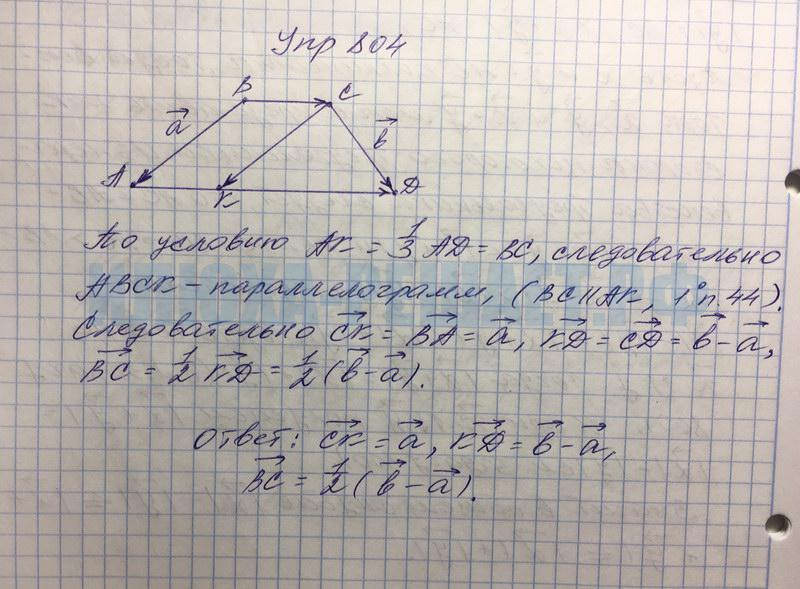 Упр 804
B
C
a⃗
b⃗
A
K
D
По условию AK = 1/3 AD = BC, следовательно
ABCK – параллелограмм, (BC || AK, 1° п. 44).
Следовательно CK⃗ = BA⃗ = a⃗, KD⃗ = CD⃗ = b⃗ – a⃗,
BC⃗ = 1/2 KD⃗ = 1/2 (b⃗ – a⃗).
Ответ: CK⃗ = a⃗, KD⃗ = b⃗ – a⃗,
BC⃗ = 1/2 (b⃗ – a⃗).